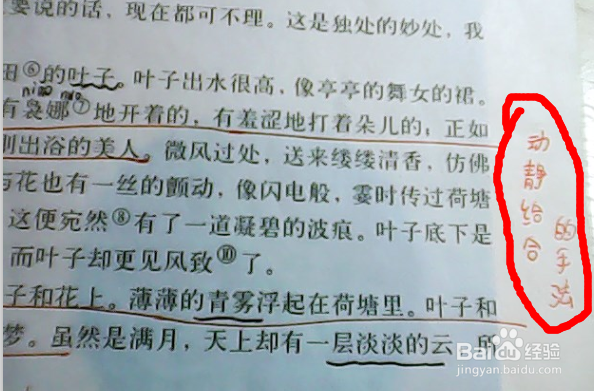 要说的话，现在都可不理。这是独处的妙处，我
田⑥的叶子。叶子出水很高，像亭亭的舞女的裙。
有袅娜⑦地开着的，有羞涩地打着朵儿的；正如
刚出浴的美人。微风过处，送来缕缕清香，仿佛
与花也有一丝的颤动，像闪电般，霎时传过荷塘
这便宛然⑧有了一道凝碧的波痕。叶子底下是
而叶子却更见风致⑩了。
子和花上。薄薄的青雾浮起在荷塘里。叶子和
梦。虽然是满月，天上却有一层淡淡的云，所
动静给合
的手法
Baidu 经验
jingyan.baidu.com